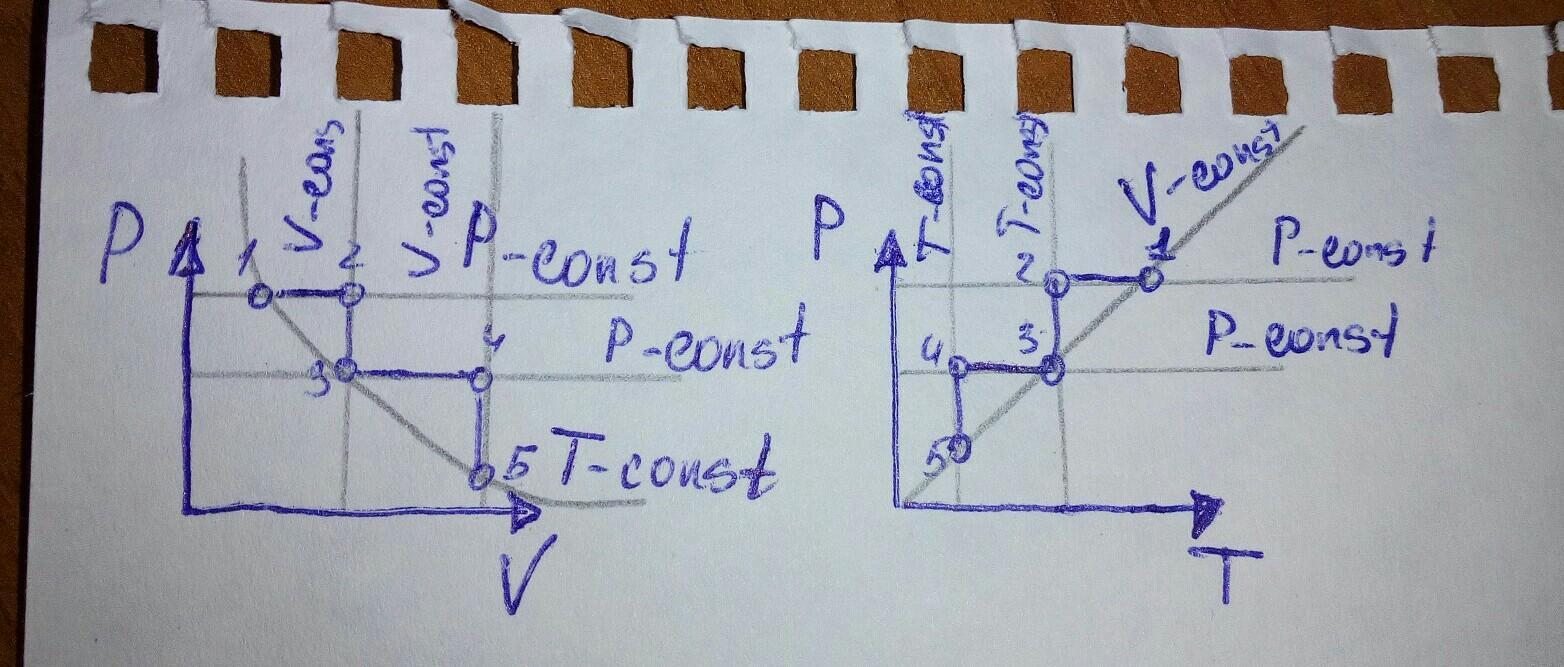 V-cons
V-const
T-const
T-const
V-const
P
1
2
P-const
P
2
1
P-const
3
4
P-const
4
3
P-const
5
T-const
5
V
T